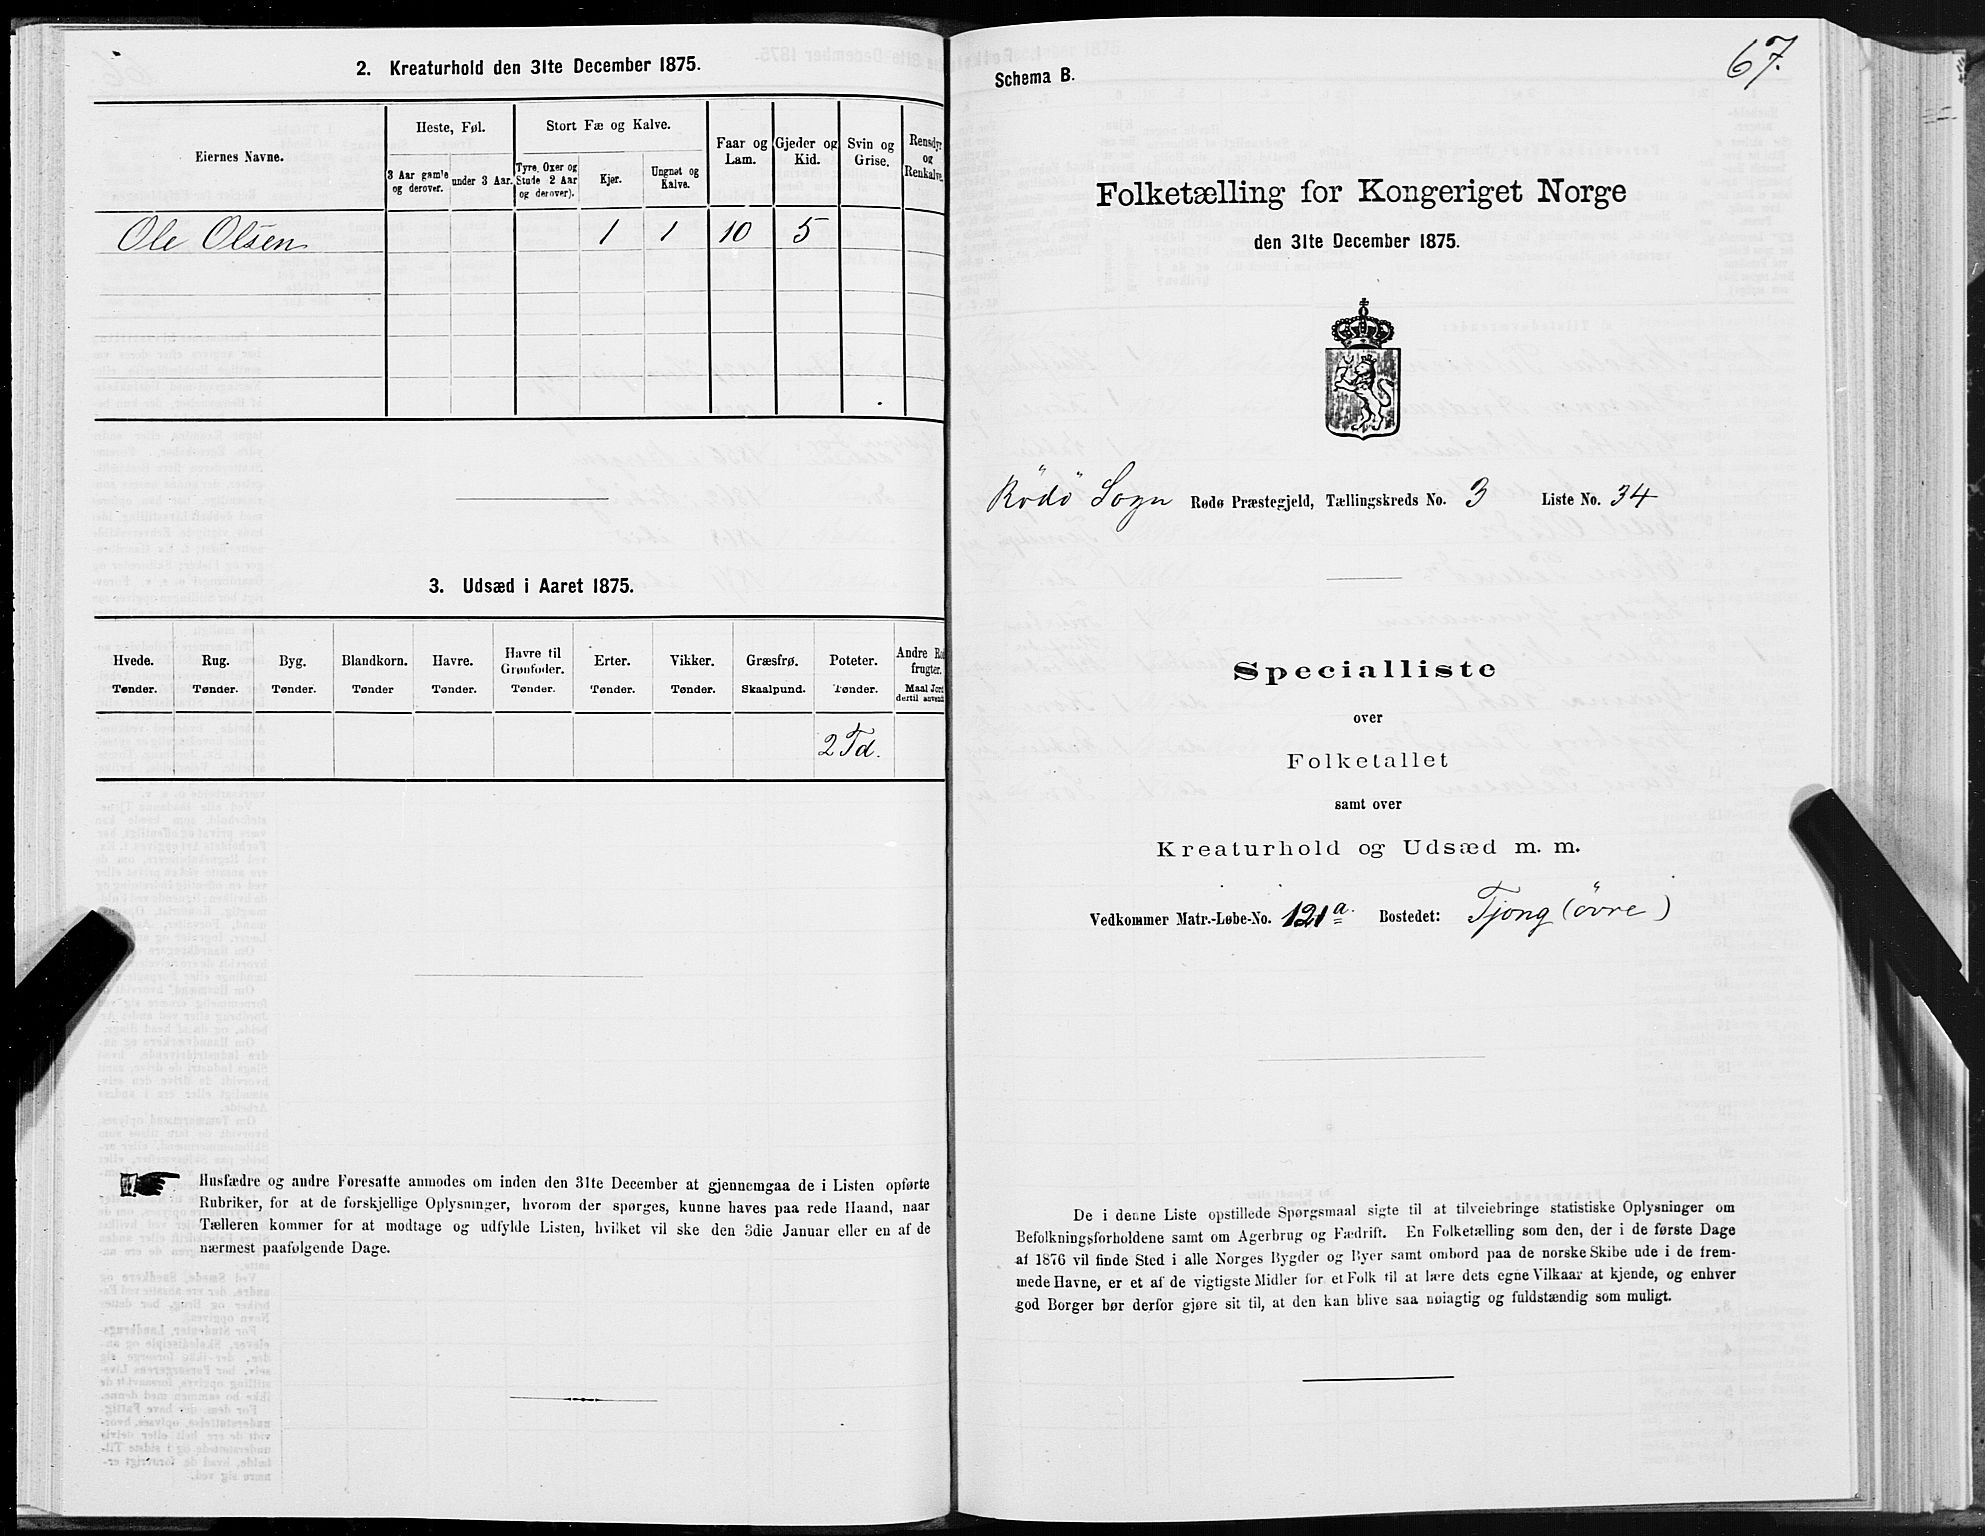 2. Kreaturhold den 31te December 1875.
Eiernes Navne.
Heste, Føl.
Stort Fæ og Kalve.
Faar og Lam.
Gjeder og Kid.
Svin og Grise.
Rensdyr og Renkalve.
3 Aar gamle og derover.
under 3 Aar.
Tyre, Oxer og Stude 2 Aar og derover).
Kjør.
Ungnøt og Kalve.
Ole Olsen 1 1 10 5
3. Udsæd i Aaret 1875.
Hvede. Rug. Byg. Blandkorn. Havre. Havre til Grønfoder. Erter. Vikker. Græsfrø. Poteter. Andre Rod frugter.
Tønder. Tønder. Tønder. Tønder Tønder. Tønder. Tønder. Tønder. Skaalpund. Tønder. Maal Jord dertil anvendt
2 Td.
Husfædre og andre Foresatte anmodes om inden den 31te December at gjennemgaa de i Listen opførte
Rubriker, for at de forskjellige Oplysninger, hvorom der spørges, kunne haves paa rede Haand, naar
Tælleren kommer for at modtage og udfylde Listen, hvilket vil ske den 3die Januar eller en af de
nærmest paafølgende Dage.
67.
Schema B.
Folketælling for Kongeriget Norge
den 31te December 1875.
Rödö Sogn Rødø Præstegjeld, Tællingskreds No. 3 Liste No. 34
Specialliste
over
Folketallet
samt over
Kreaturhold og Udsæd m. m.
Vedkommer Matr.-Løbe-No. 121a. Bostedet: Tjong (övre)
De i denne Liste opstillede Spørgsmaal sigte til at tilveiebringe statistiske Oplysninger om
Befolkningsforholdene samt om Agerbrug og Fædrift. En Folketælling som den, der i de første Dage
af 1876 vil finde Sted i alle Norges Bygder og Byer samt ombord paa de norske Skibe ude i de frem-
mede Havne, er et af de vigtigste Midler for et Folk til at lære dets egne Vilkaar at kjende, og enhver
god Borger bør derfor gjøre sit til, at den kan blive saa nøiagtig og fuldstændig som muligt.